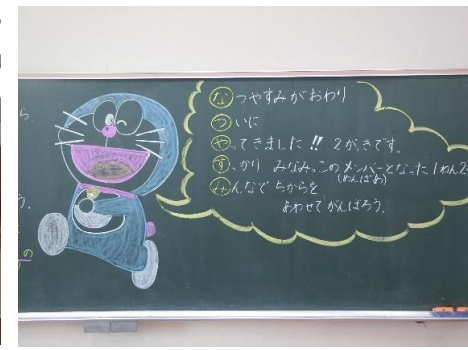 なつやすみがおわり
ついに
やってきました!! 2がっきです。
すっかり みなみっこのメンバーとなった1ねん2
(めんばあ)
みんなで ちからを
あわせてがんばろう。
ら、
う。
の